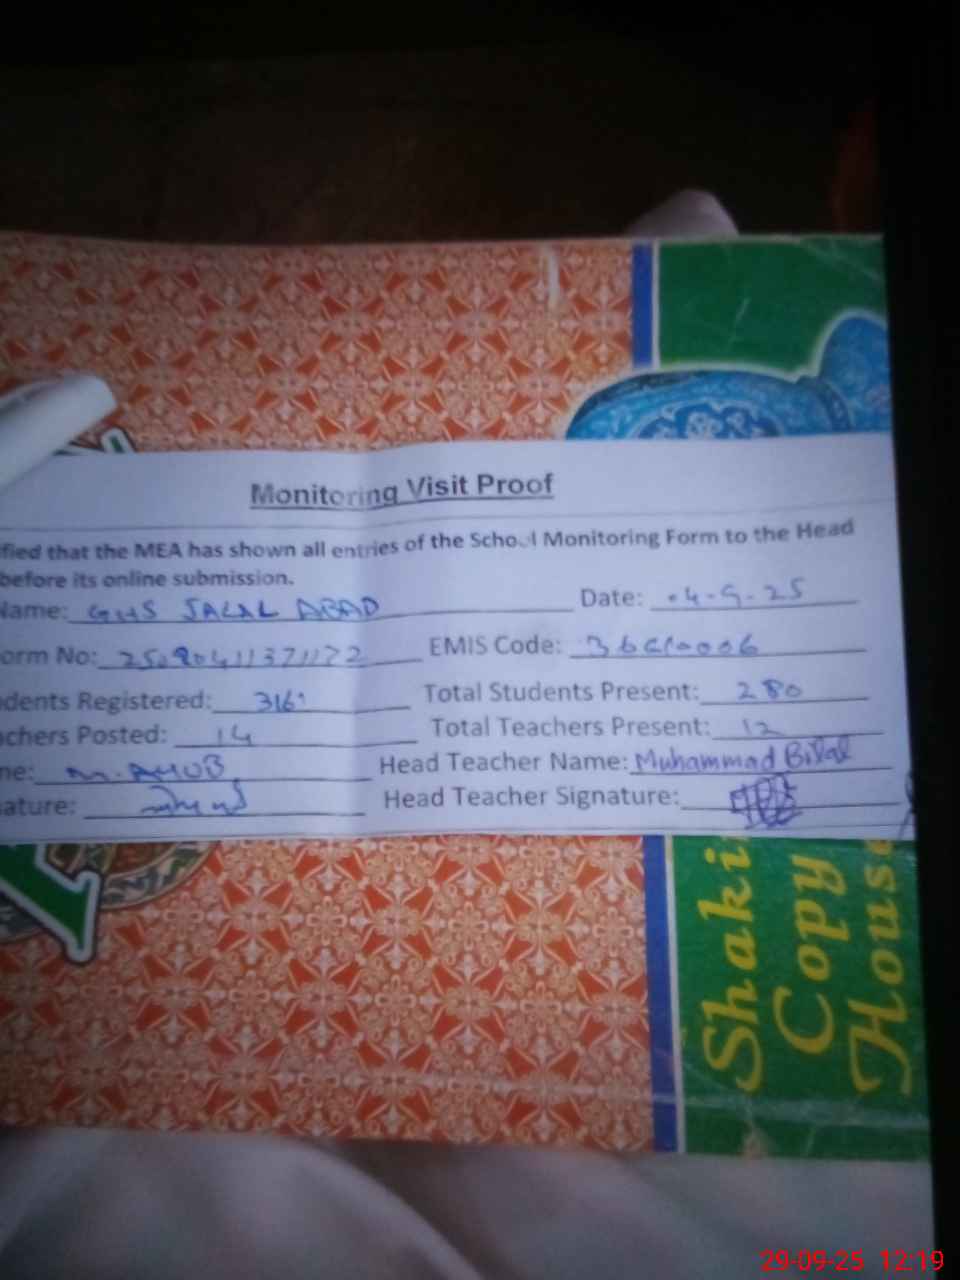 Monitoring Visit Proof
fied that the MEA has shown all entries of the School Monitoring Form to the Head
before its online submission.
Name: GHS JALAL ABAD Date: 04-9-25
orm No: EMIS Code:
dents Registered: 316 Total Students Present: 280
achers Posted: 14 Total Teachers Present: 12
me: M. AYUB Head Teacher Name: Muhammad Bilal
ature: Head Teacher Signature:
Shaki
Copy
House
29-09-25 12:19